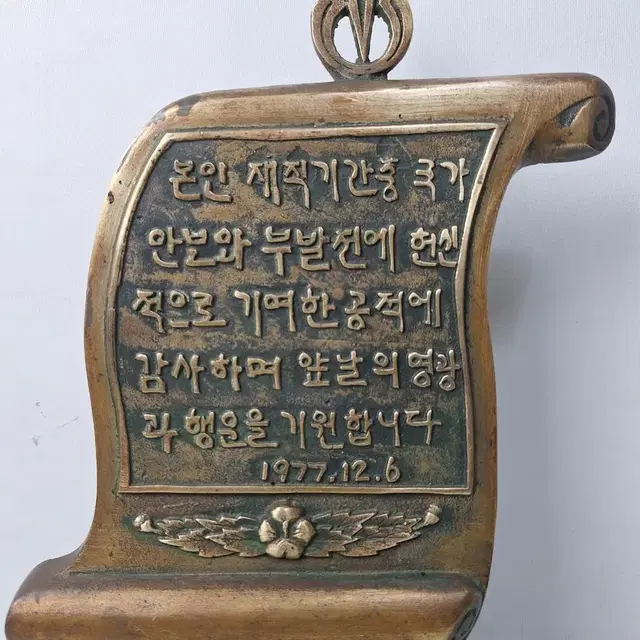 본인 재직기간중 국가
안보와 부발전에 헌신
적으로 기여한 공적에
감사하며 앞날의 영광
과 행운을 기원합니다
1977.12.6